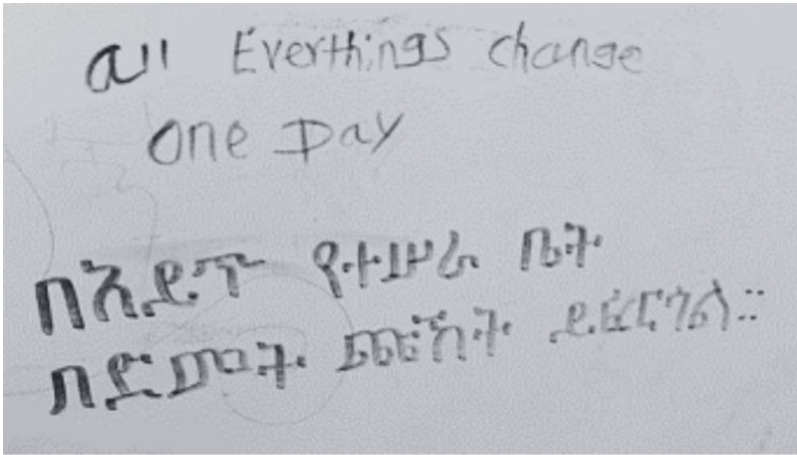 all Everthings change
One Day
በአይጥ የተሠራ ቤት
በድመት ጩኸት ይፈርሳል።